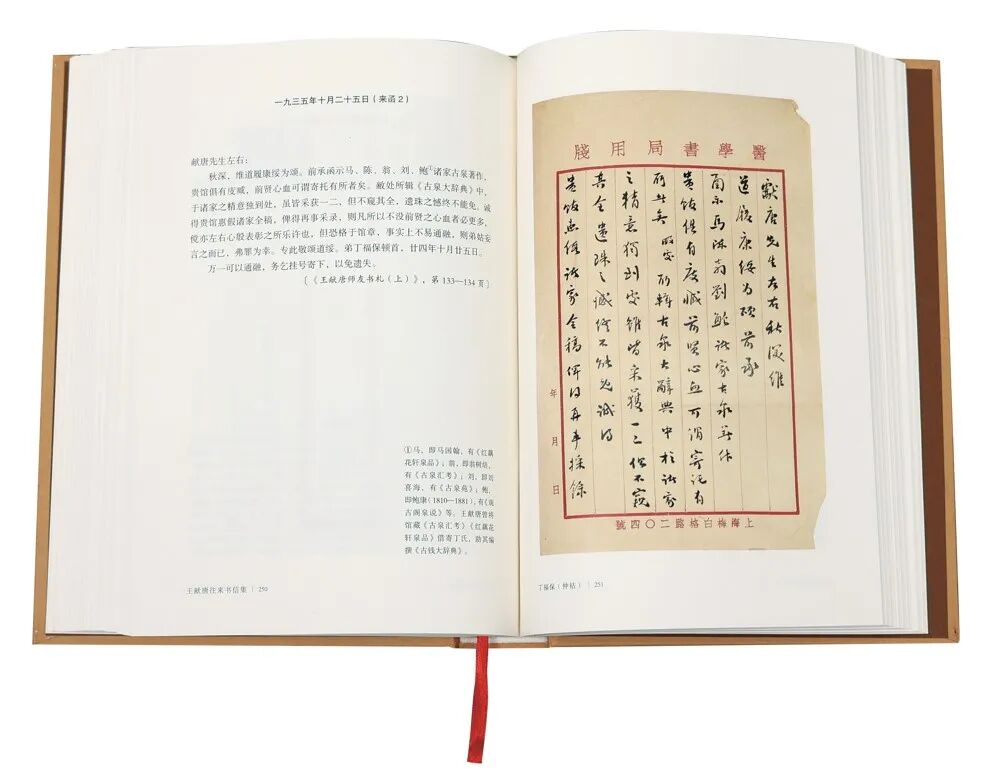 一九三五年十月二十五日（来函2）
献唐先生左右：
秋深，维道履康绥为颂。前承函示马、陈、翁、刘、鲍①诸家古泉著作，
贵馆俱有庋臧，前贤心血可谓寄托有所者矣。敝处所辑《古泉大辞典》中，
于诸家之精意独到处，虽皆采获一二，但不窥其全，遗珠之憾终不能免，诚
得贵馆惠假诸家全稿，俾得再事采录，则凡所以不没前贤之心血者必更多，
傥亦左右心殷表彰之所乐许也，但恐格于馆章，事实上不易通融，则弟姑妄
言之而已，弗罪为幸。专此敬颂道绥。弟丁福保顿首，廿四年十月廿五日。
万一可以通融，务乞挂号寄下，以免遗失。
〔《王献唐师友书札（上）》，第133—134页〕
①马，即马国翰，有《红藕
花轩泉品》；翁，即翁树培，
有《古泉汇考》；刘，即刘
喜海，有《古泉苑》；鲍，
即鲍康（1810—1881），有《观
古阁泉说》等。王献唐曾将
馆藏《古泉汇考》《红藕花
轩泉品》借寄丁氏，助其编
撰《古钱大辞典》。
王献唐往来书信集 | 250
醫學書局用牋
獻唐先生左右秋深維
道履康綏为頌前承
函示馬陳翁劉鮑諸家古泉著作
貴館俱有庋臧前賢心血可謂寄託有
所者矣敝處所輯古泉大辭典中於諸家
之精意獨到處雖皆采獲一二但不窺
其全遺珠之憾終不能免誠得
貴館惠假諸家全稿俾得再事採錄
年
月
日
上海梅白格路二〇四號
丁福保（仲祜） | 251